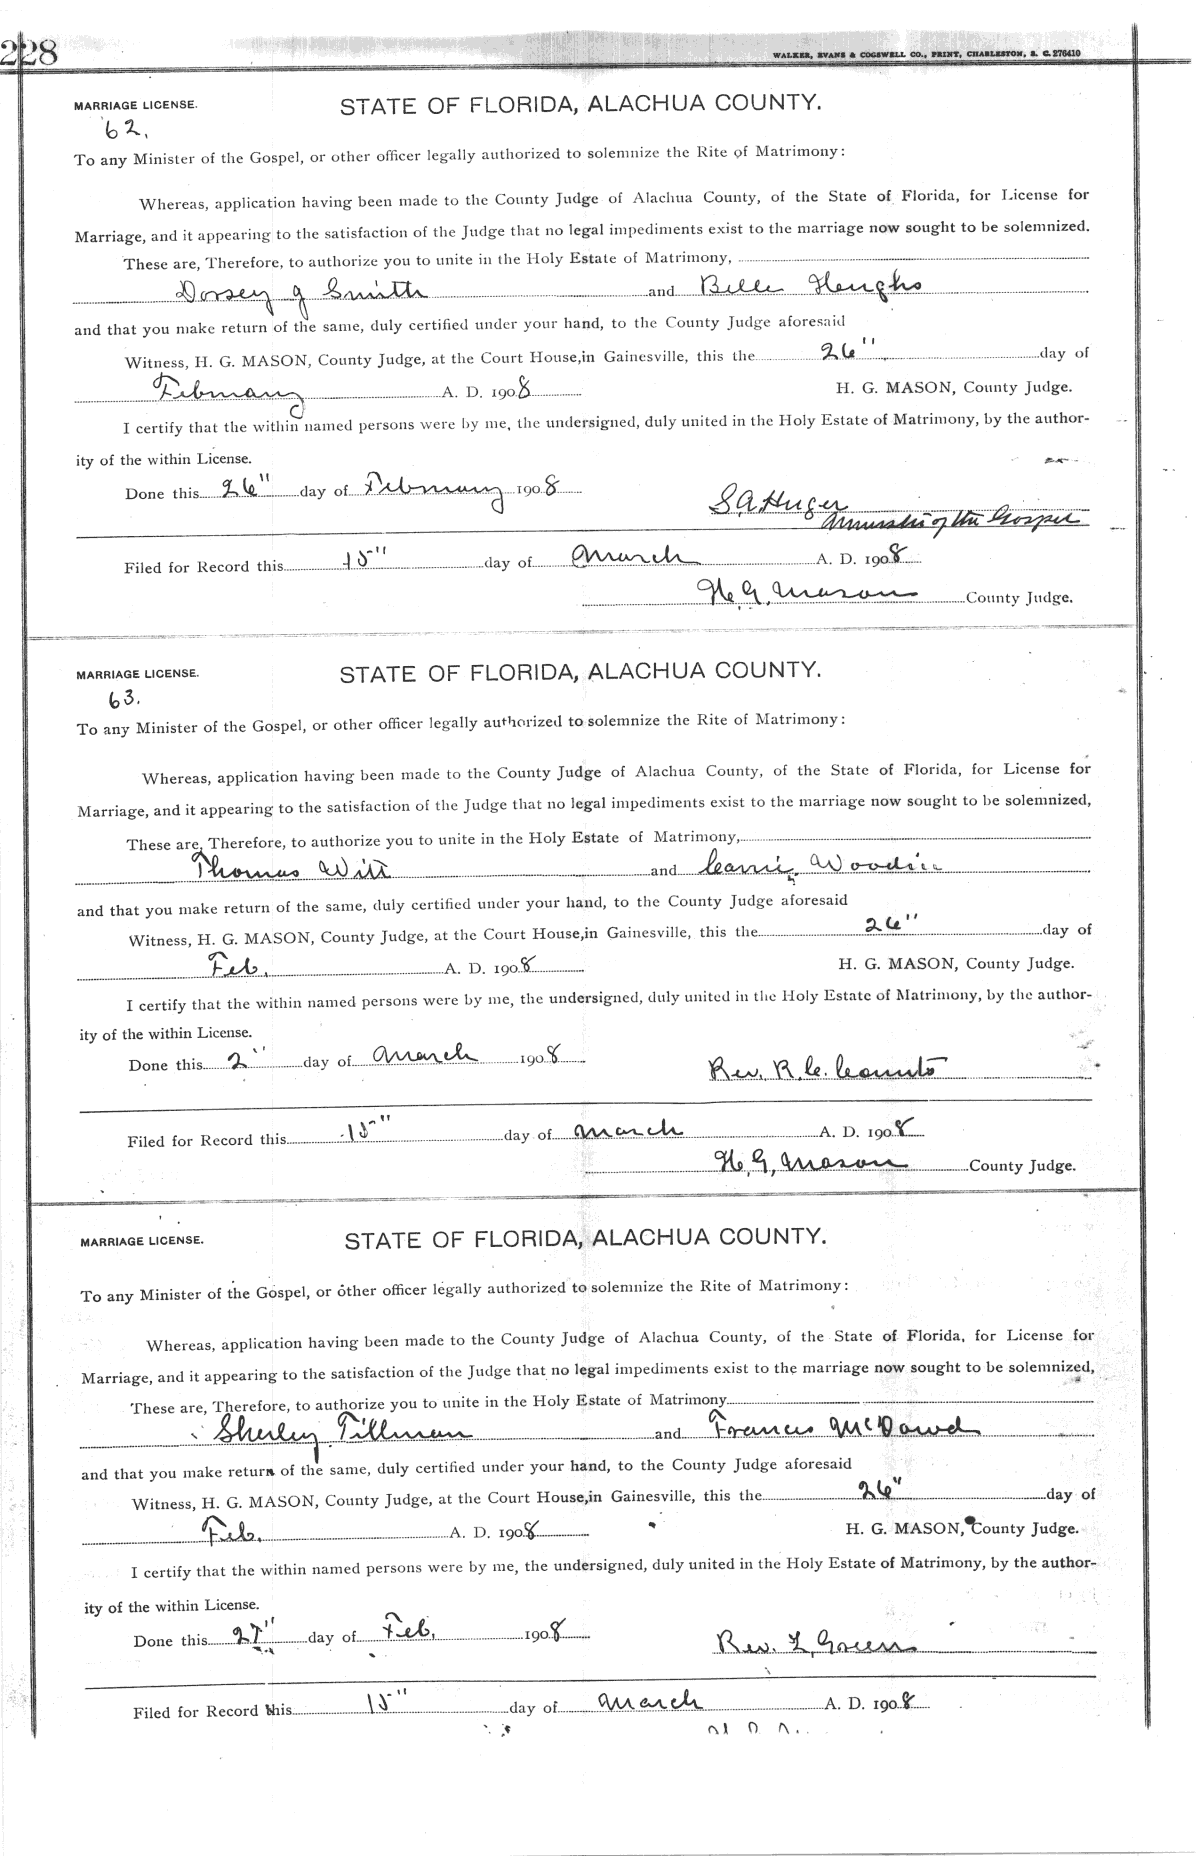 228
WALKER, EVANS & COGSWELL CO., PRINT, CHARLESTON, S. C. 276410
MARRIAGE LICENSE. STATE OF FLORIDA, ALACHUA COUNTY.
62.
To any Minister of the Gospel, or other officer legally authorized to solemnize the Rite of Matrimony:
Whereas, application having been made to the County Judge of Alachua County, of the State of Florida, for License for
Marriage, and it appearing to the satisfaction of the Judge that no legal impediments exist to the marriage now sought to be solemnized.
These are, Therefore, to authorize you to unite in the Holy Estate of Matrimony,
Dorsey J Smith and Belle Heughs
and that you make return of the same, duly certified under your hand, to the County Judge aforesaid
Witness, H. G. MASON, County Judge, at the Court House, in Gainesville, this the 26" day of
February A. D. 1908 H. G. MASON, County Judge.
I certify that the within named persons were by me, the undersigned, duly united in the Holy Estate of Matrimony, by the author-
ity of the within License.
Done this 26" day of February 1908
S A Huger
Minister of the Gospel
Filed for Record this 15" day of March A. D. 1908
H. G. Mason County Judge.
MARRIAGE LICENSE. STATE OF FLORIDA, ALACHUA COUNTY.
63.
To any Minister of the Gospel, or other officer legally authorized to solemnize the Rite of Matrimony:
Whereas, application having been made to the County Judge of Alachua County, of the State of Florida, for License for
Marriage, and it appearing to the satisfaction of the Judge that no legal impediments exist to the marriage now sought to be solemnized,
These are, Therefore, to authorize you to unite in the Holy Estate of Matrimony,
Thomas Witt and Carrie Woodsie
and that you make return of the same, duly certified under your hand, to the County Judge aforesaid
Witness, H. G. MASON, County Judge, at the Court House, in Gainesville, this the 26" day of
Feb. A. D. 1908 H. G. MASON, County Judge.
I certify that the within named persons were by me, the undersigned, duly united in the Holy Estate of Matrimony, by the author-
ity of the within License.
Done this 2" day of March 1908 Rev. R. C.
Filed for Record this 15" day of March A. D. 1908
H. G. Mason County Judge.
MARRIAGE LICENSE. STATE OF FLORIDA, ALACHUA COUNTY.
To any Minister of the Gospel, or other officer legally authorized to solemnize the Rite of Matrimony:
Whereas, application having been made to the County Judge of Alachua County, of the State of Florida, for License for
Marriage, and it appearing to the satisfaction of the Judge that no legal impediments exist to the marriage now sought to be solemnized,
These are, Therefore, to authorize you to unite in the Holy Estate of Matrimony
Sherley Tillman and Frances McDowd
and that you make return of the same, duly certified under your hand, to the County Judge aforesaid
Witness, H. G. MASON, County Judge, at the Court House, in Gainesville, this the 26" day of
Feb. A. D. 1908 H. G. MASON, County Judge.
I certify that the within named persons were by me, the undersigned, duly united in the Holy Estate of Matrimony, by the author-
ity of the within License.
Done this 27" day of Feb. 1908 Rev. Z. Green
Filed for Record this 15" day of March A. D. 1908